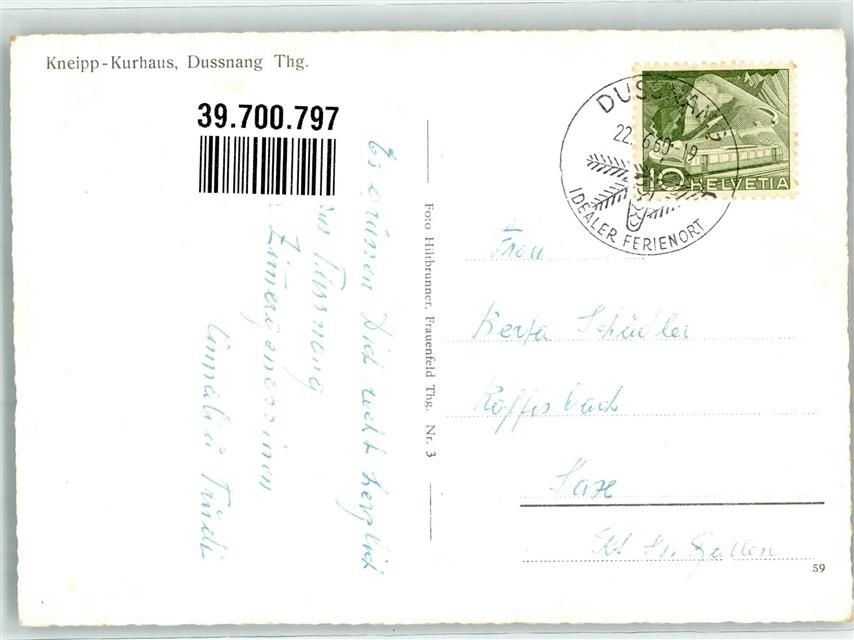 Kneipp-Kurhaus, Dussnang Thg.
39.700.797
DUSSNANG
22. 6.60-19
IDEALER FERIENORT
10 HELVETIA
Es grüssen Dich recht herzlich
aus Tussnang
Zimergenossinen
Trudi
Foto Hiltbrunner, Frauenfeld Thg. Nr. 3
Frau
Berta Schüdler
Saxe
Kt St. Gallen
59